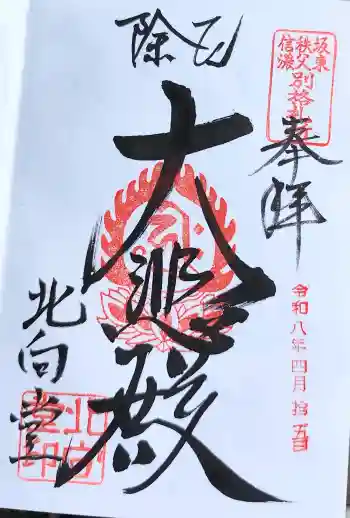 坂東
秩父
信濃
別格
奉拝
令和八年四月拾五日
厄除
大悲殿
北向堂
北向
堂印